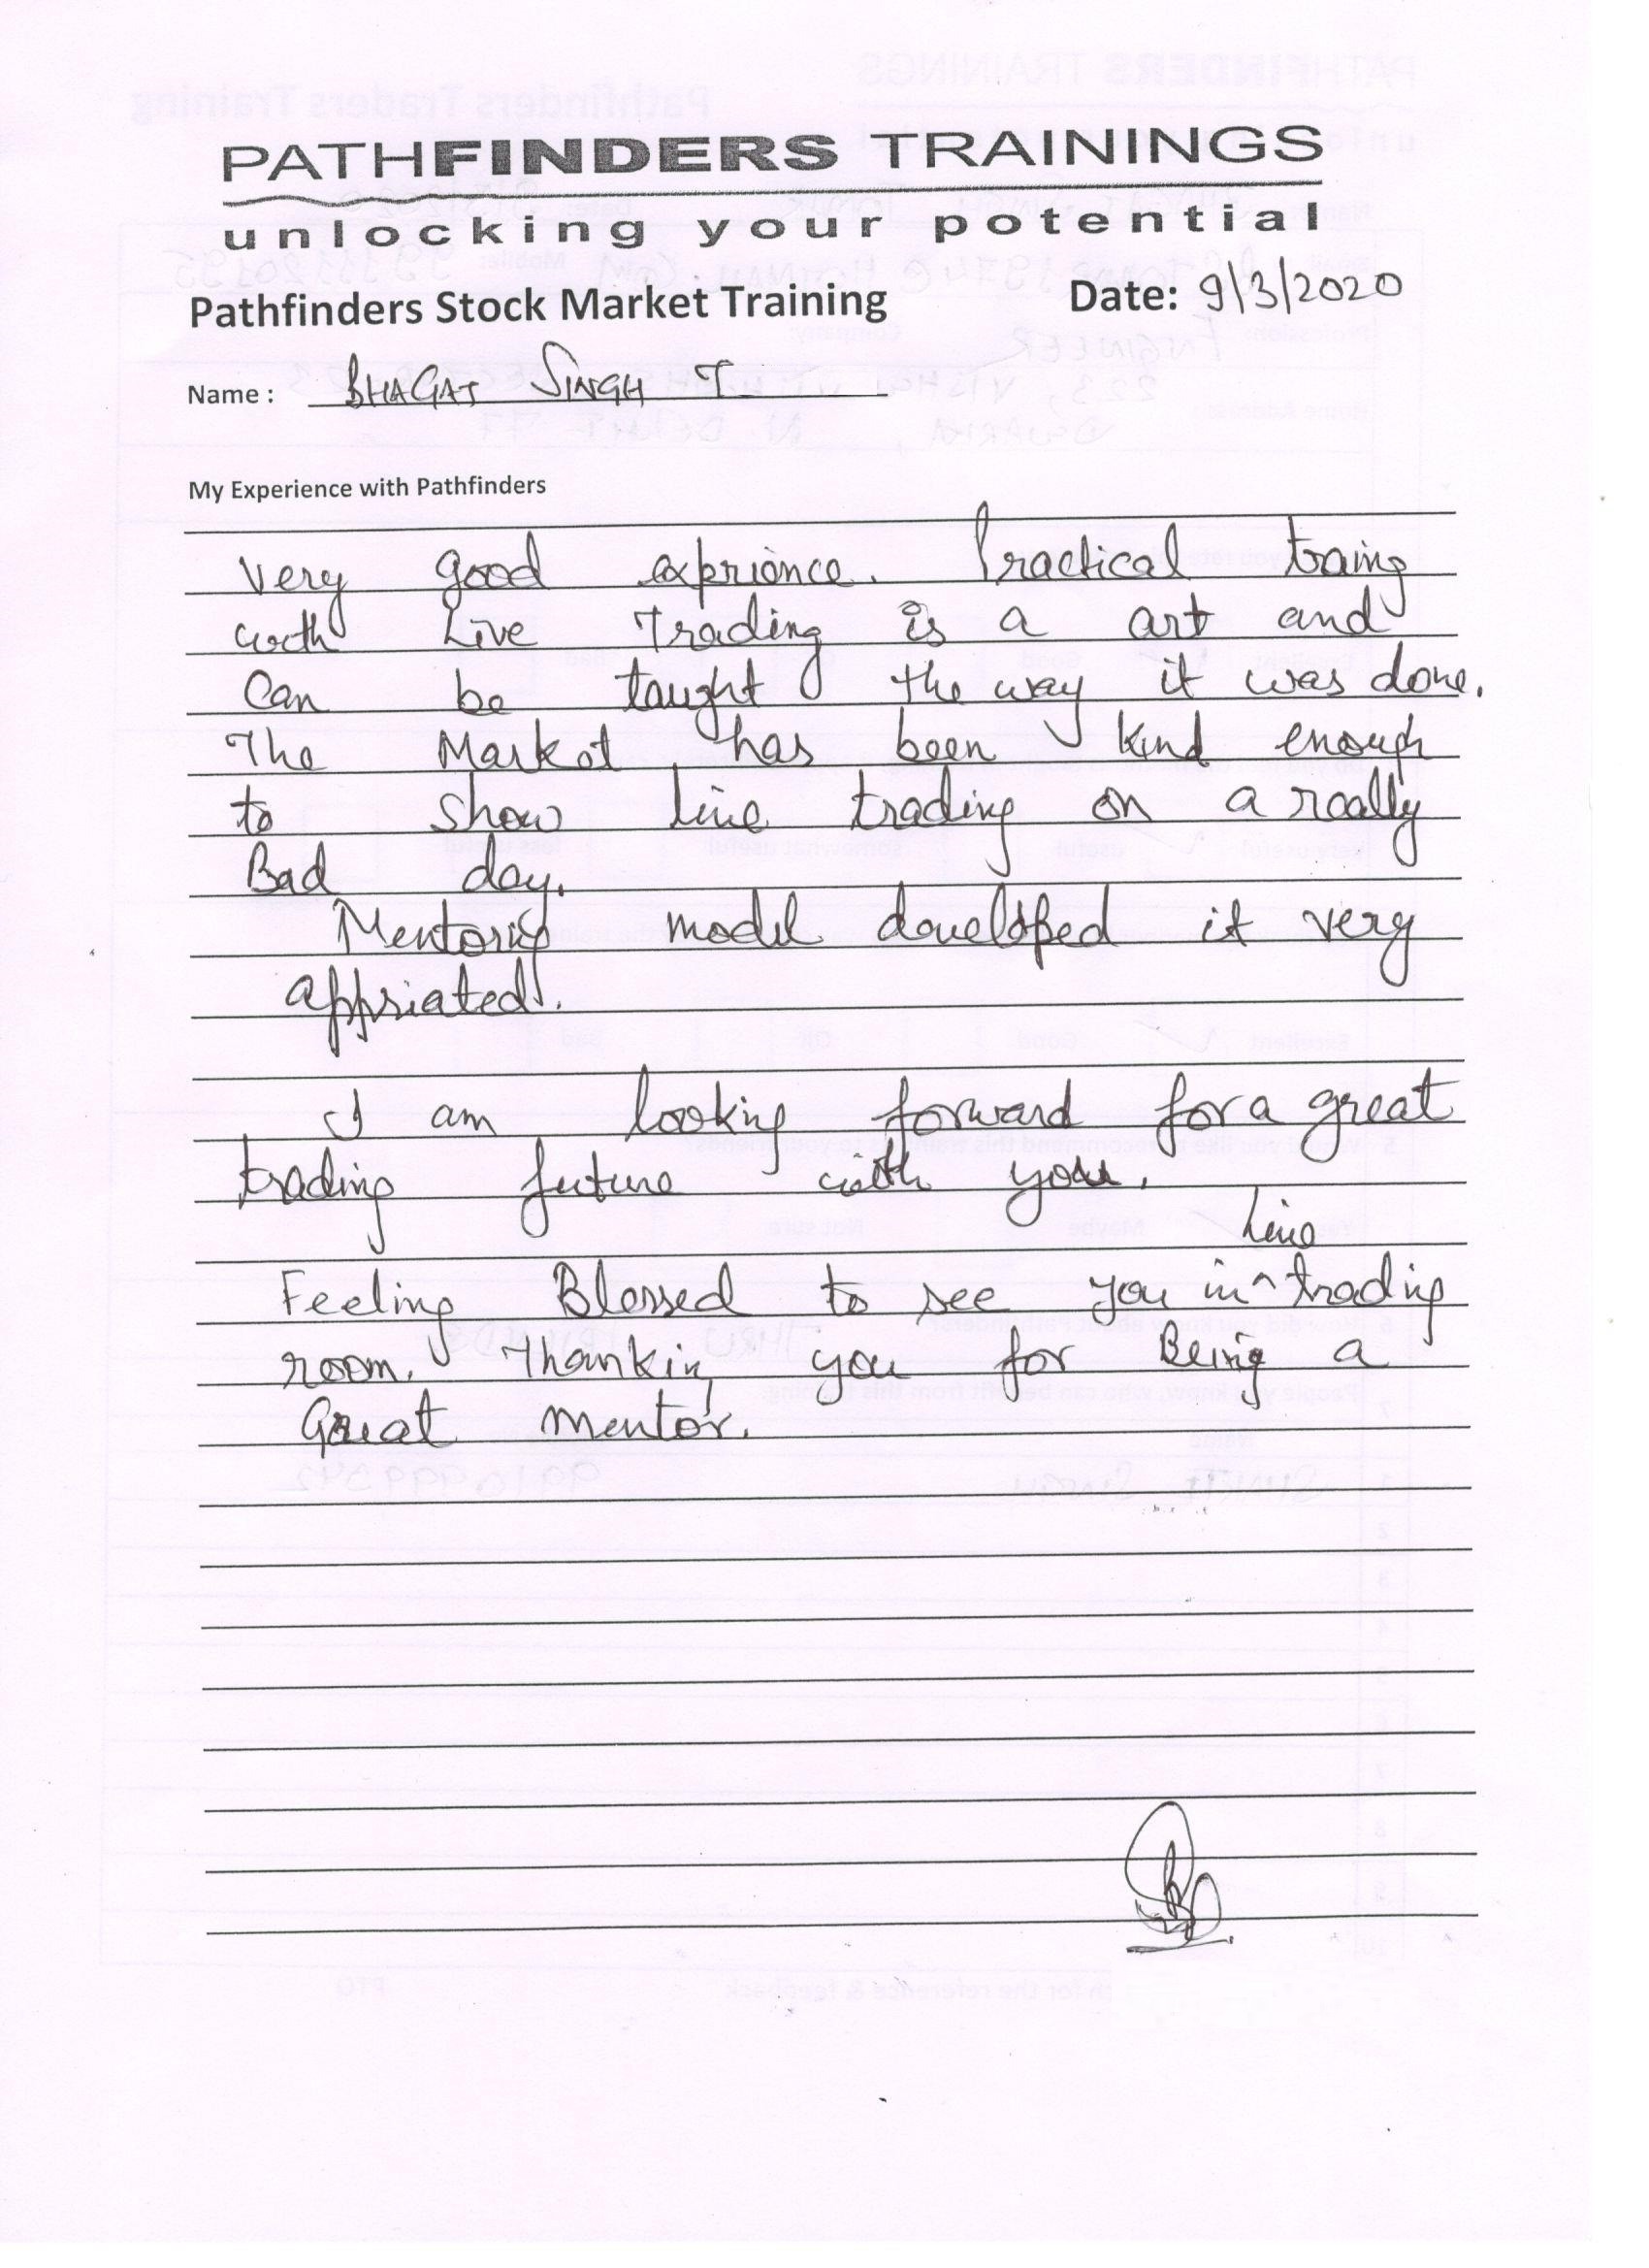 PATHFINDERS TRAININGS
unlocking your potential
Pathfinders Stock Market Training Date: 9/3/2020
Name : BHAGAT SINGH T
My Experience with Pathfinders
Very good exprience. Practical traing
with Live Trading is a art and
Can be taught the way it was done.
The Market has been kind enough
to show live trading on a really
Bad day.
Mentoring model developed it very
appriated.
I am looking forward for a great
trading future with you.
Live
Feeling Blessed to see you in ^ trading
room. Thankin you for Being a
Great mentor.